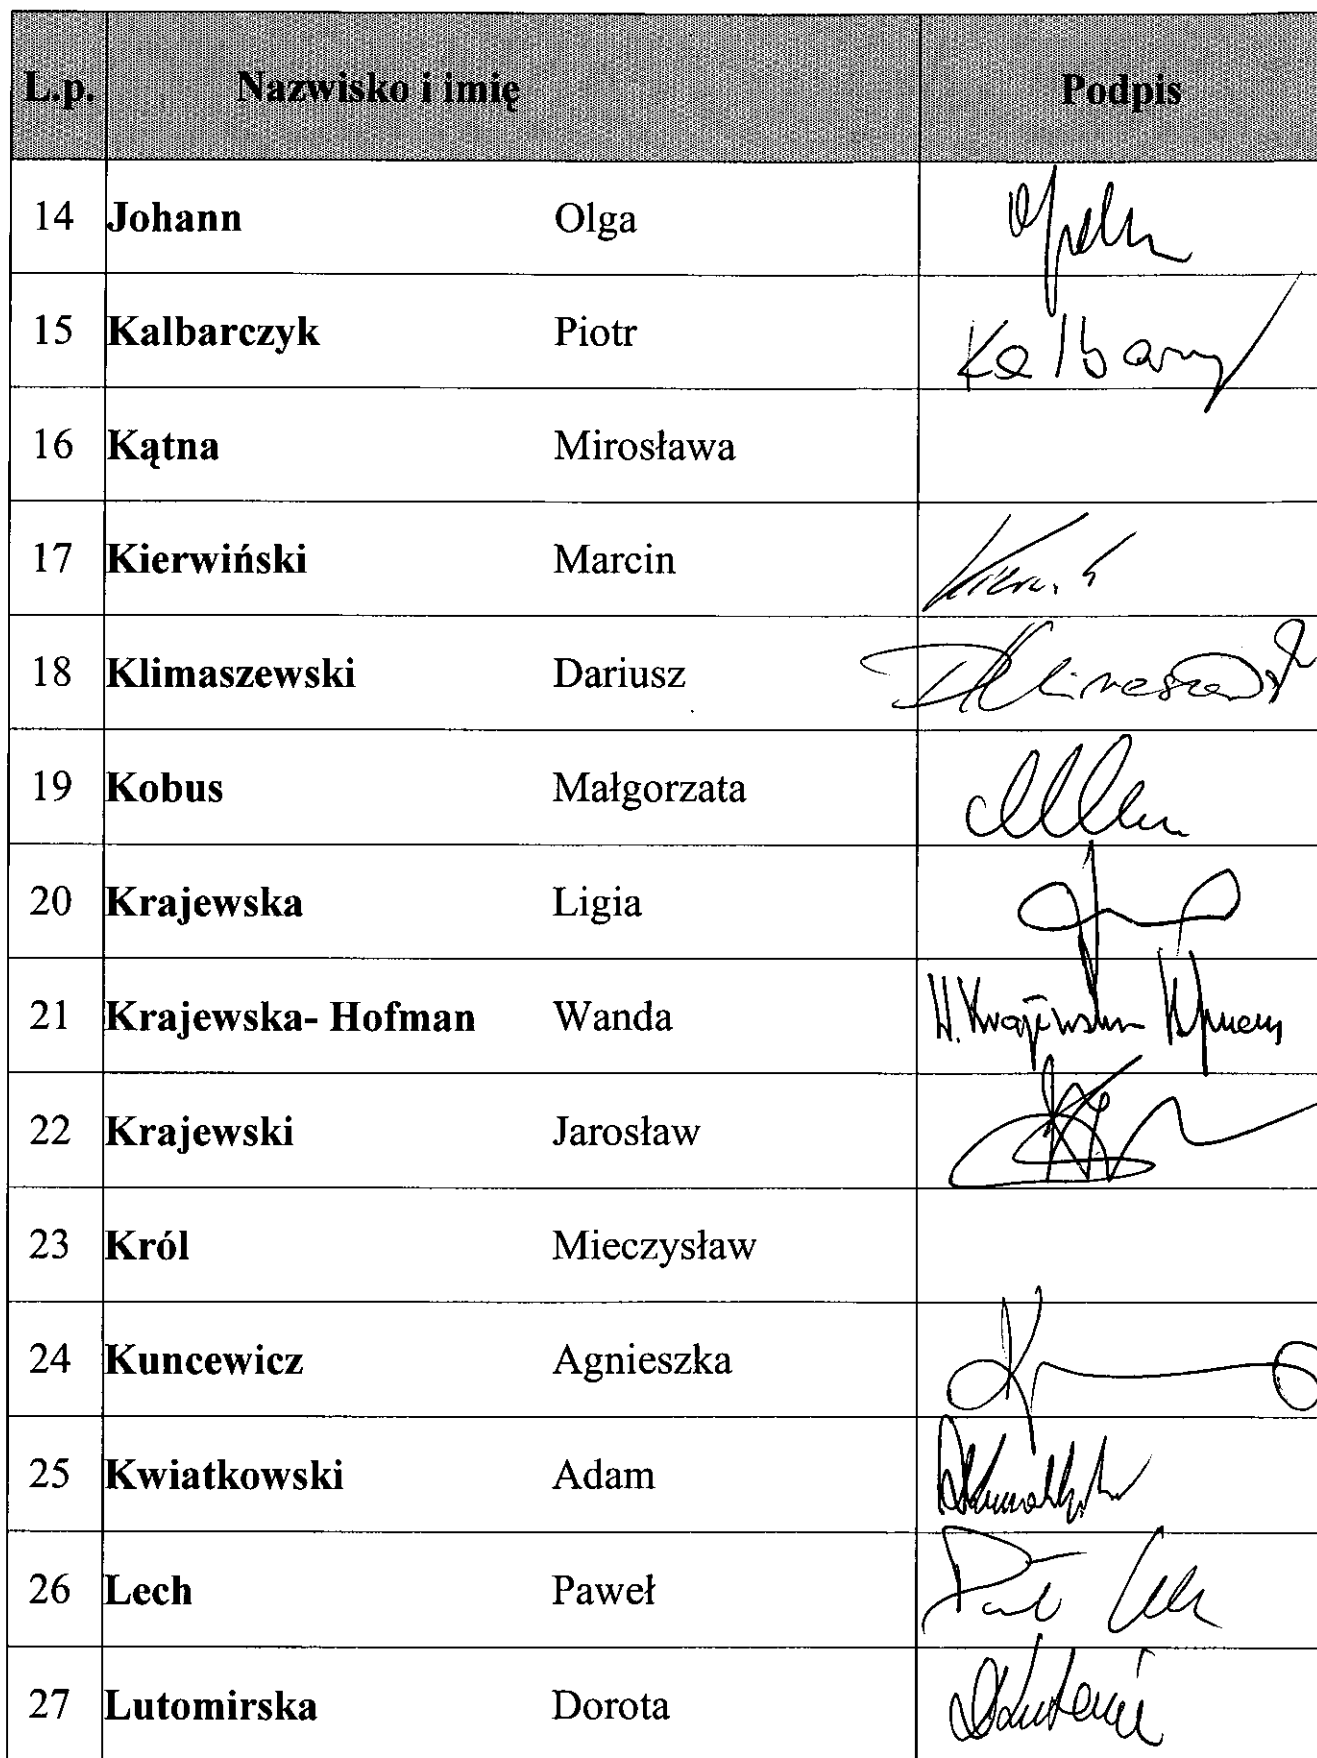 L.p. Nazwisko i imię Podpis
14 Johann Olga
15 Kalbarczyk Piotr Kalbarczyk
16 Kątna Mirosława
17 Kierwiński Marcin
18 Klimaszewski Dariusz DKlimaszewski
19 Kobus Małgorzata
20 Krajewska Ligia
21 Krajewska- Hofman Wanda W. Krajewska Hofman
22 Krajewski Jarosław
23 Król Mieczysław
24 Kuncewicz Agnieszka
25 Kwiatkowski Adam
26 Lech Paweł
27 Lutomirska Dorota